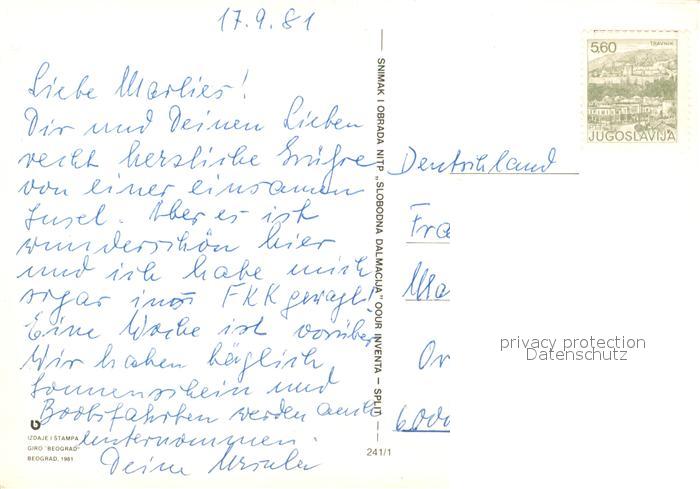 17.9.81
Liebe Marlies!
Dir und Deinen Lieben
recht herzliche Grüße
von einer einsamen
Insel. Aber es ist
wunderschön hier
und ich habe mich
sogar ins FKK gewagt!
Eine Woche ist vorüber
Wir haben täglich
Sonnenschein und
Bootsfahrten werden auch
unternommen.
Deine Ursula
IZDAJE I ŠTAMPA
GIRO "BEOGRAD"
BEOGRAD, 1981
SNIMAK I OBRADA NITP „SLOBODNA DALMACIJA" OOUR INVENTA — SPLIT
241/1
5,60
TRAVNIK
JUGOSLAVIJA
Deutschland
Fra
Ma
privacy protection
Datenschutz